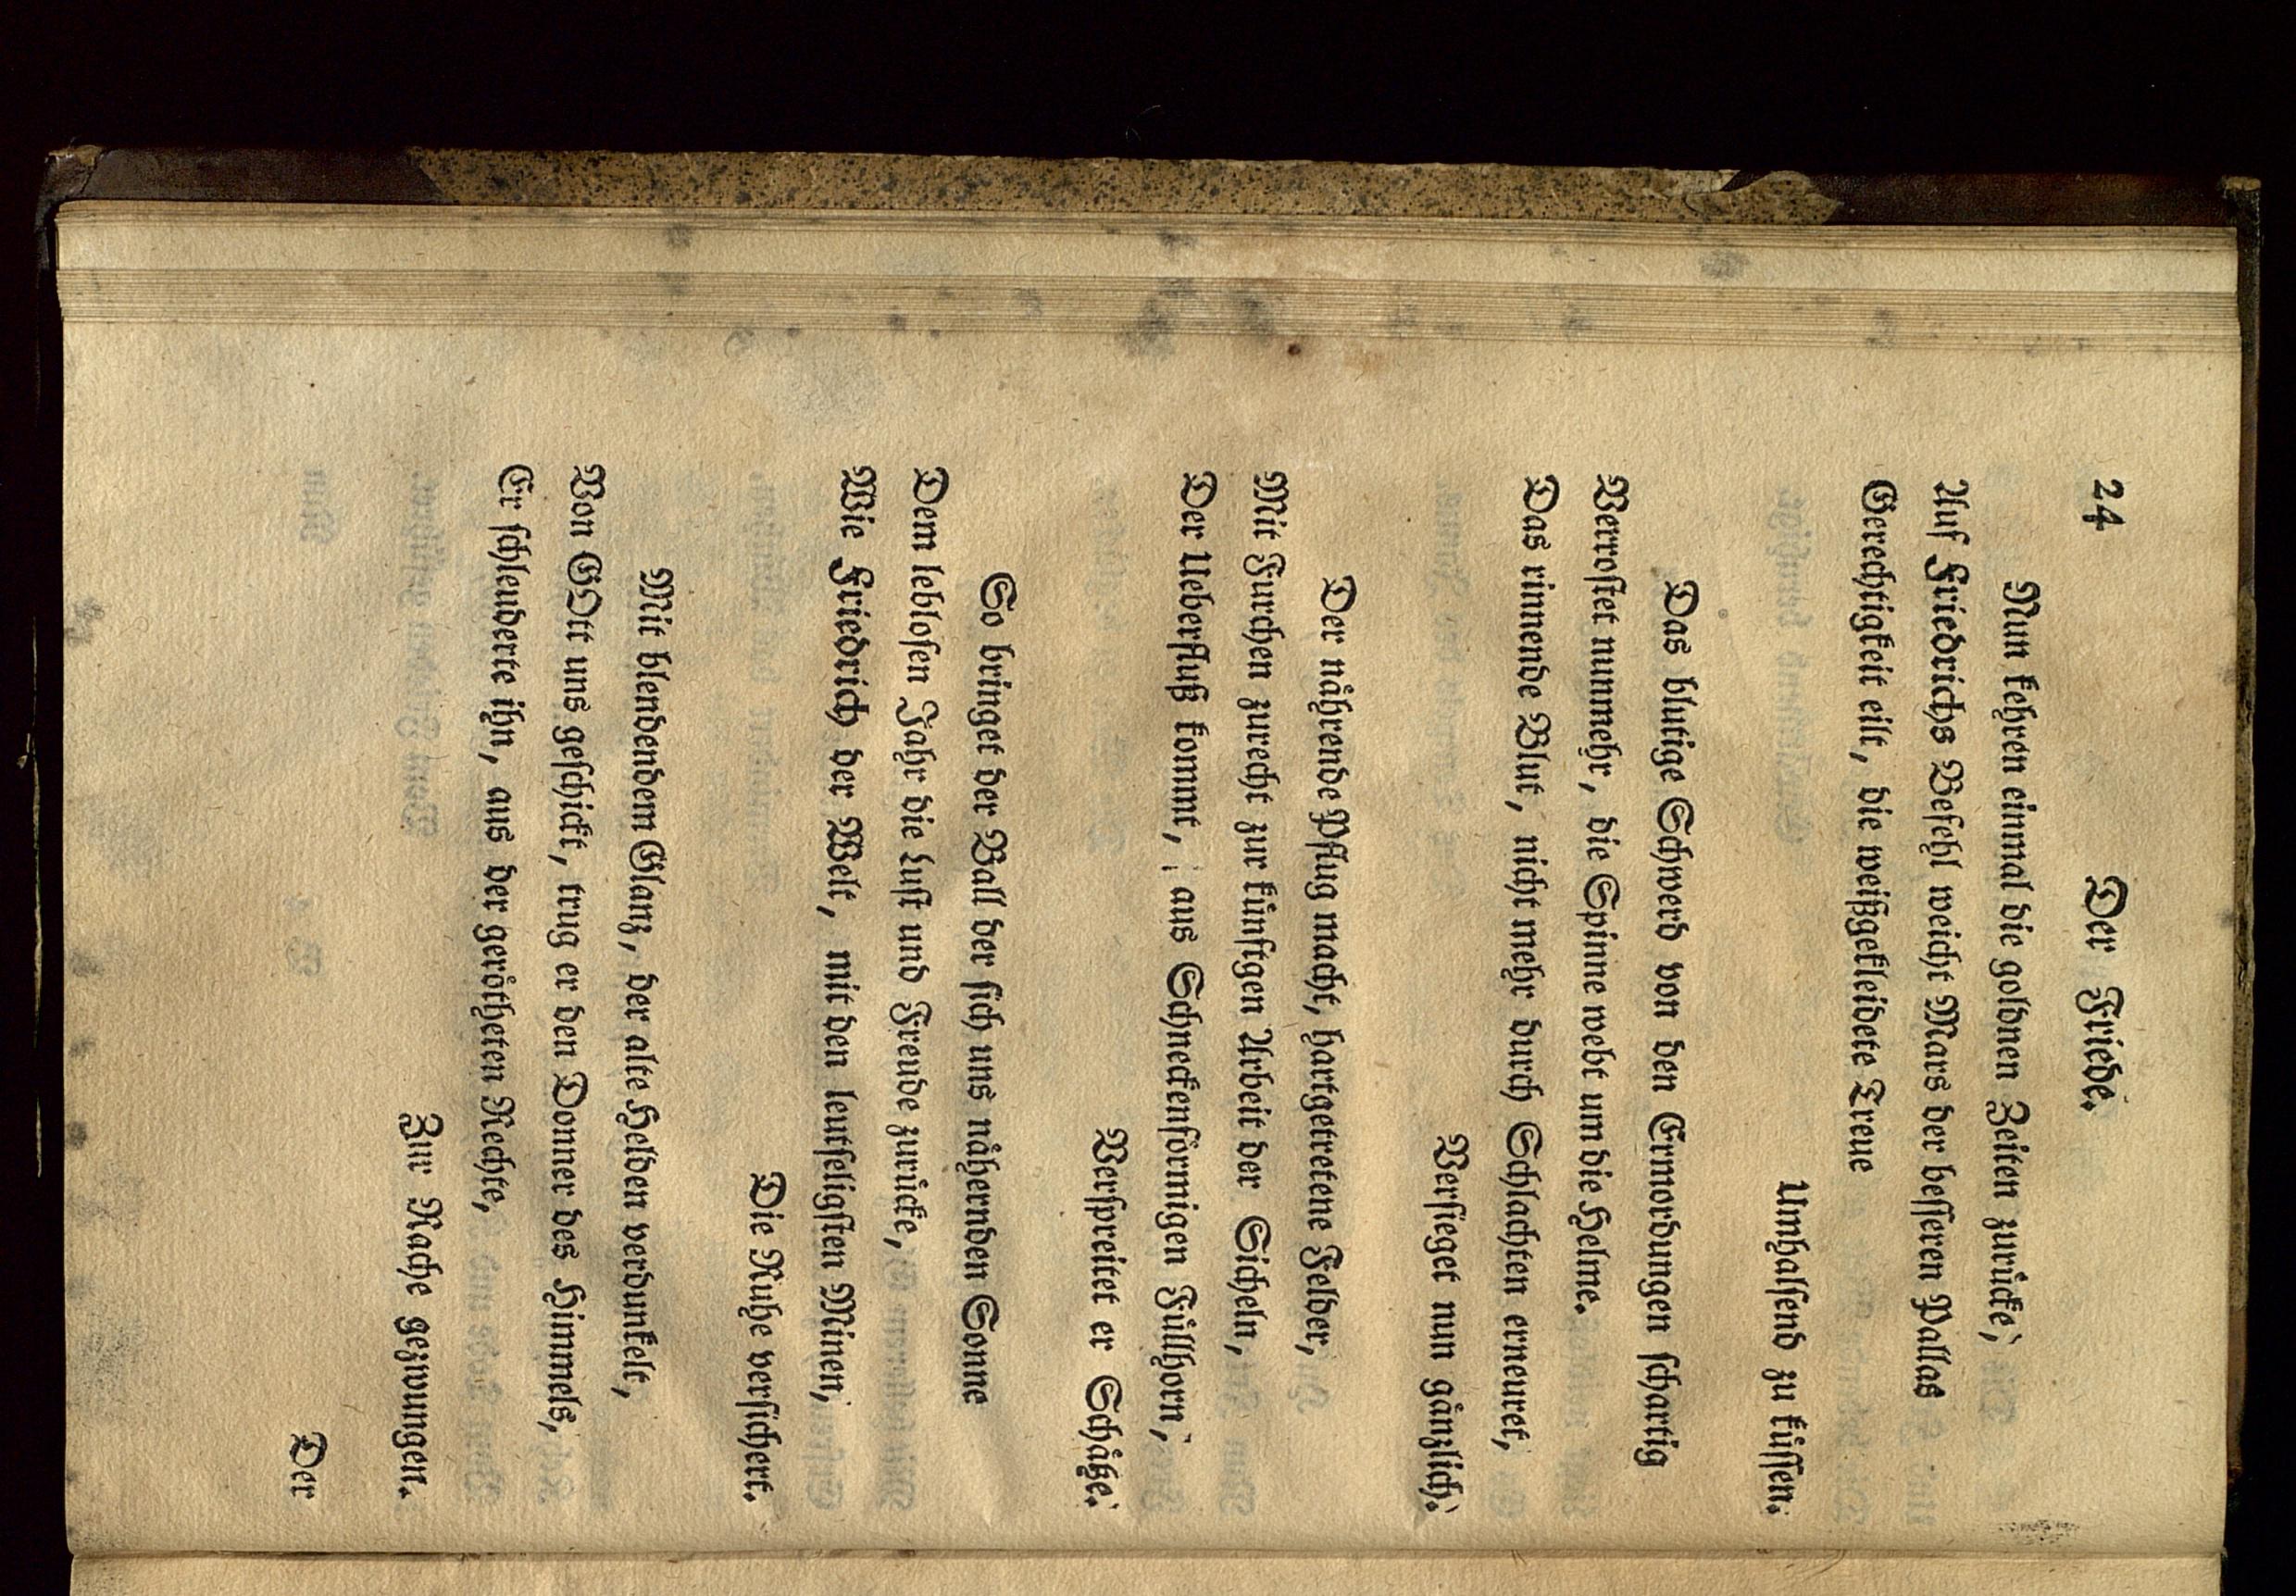 24 Der Friede.
Nun kehren einmal die goldnen Zeiten zurücke,
Auf Friedrichs Befehl weicht Mars der besseren Pallas
Gerechtigkeit eilt, die weißgekleidete Treue
Umhalsend zu küssen.
Das blutige Schwerd von den Ermordungen schartig
Verrostet nunmehr, die Spinne webt um die Helme.
Das rinnende Blut, nicht mehr durch Schlachten erneuret,
Versieget nun gänzlich.
Der nährende Pflug macht, hartgetretene Felder,
Mit Furchen zurecht zur künftgen Arbeit der Sicheln,
Der Ueberfluß kommt, aus Schneckenförmigen Füllhorn,
Verspreitet er Schätze.
So bringet der Ball der sich uns nähernden Sonne
Dem leblosen Jahr die Lust und Freude zurücke,
Wie Friedrich der Welt, mit den leutseligsten Minen,
Die Ruhe versichert.
Mit blendendem Glanz, der alte Helden verdunkelt,
Von GOtt uns geschickt, trug er den Donner des Himmels,
Er schleuderte ihn, aus der gerötheten Rechte,
Zur Rache gezwungen.
Der